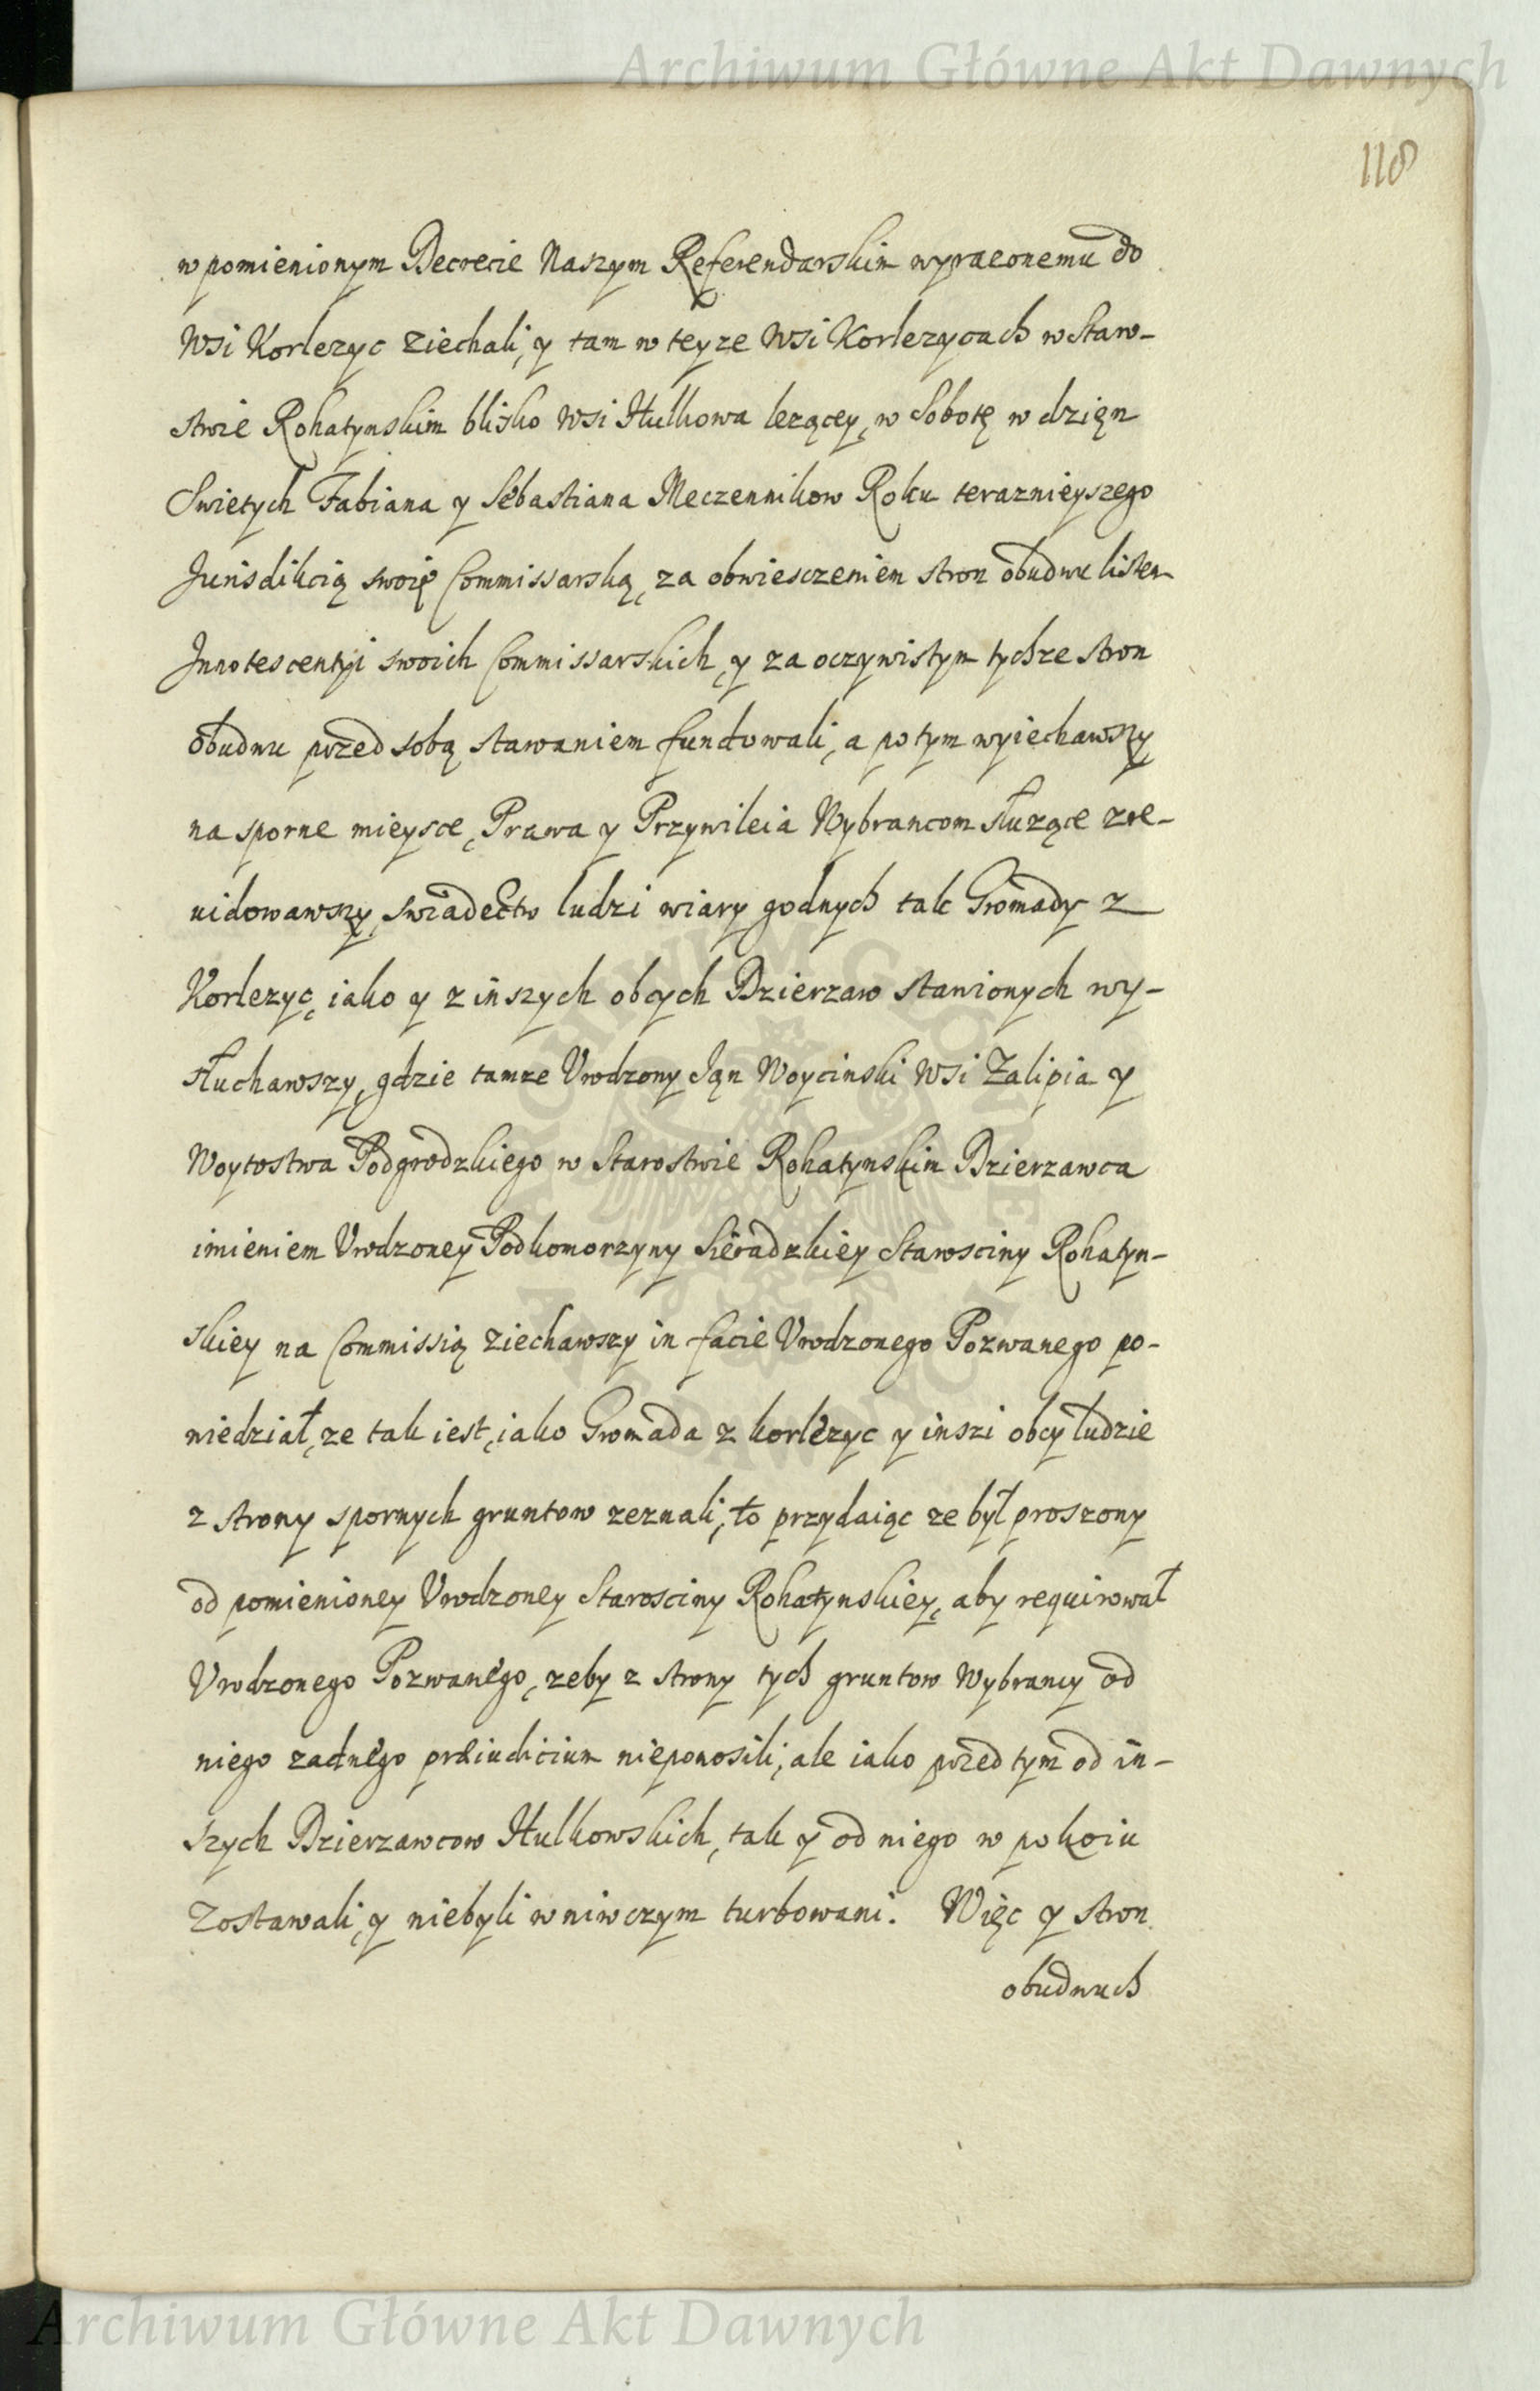 Archiwum Główne Akt Dawnych
118
w pomienionym Decrecie Naszym Referendarskim wyraconemu do
Wsi Korlezyc ziechali, y tam w teyze Wsi Korlezycach w Staw-
stwie Rohatynskim blisko Wsi Hulkowa lezącey, w Sobotę w dzięn
Swietych Fabiana y Sebastiana Meczennikow Roku teraznieyszego
Jurisdikcią swoię Commissarską, za obwiesczeniem stron obudwu listem
Innotescentyi swoich Commissarskich, y za oczywistym tychze stron
obudwu przed sobą stawaniem fundowali, a potym wyiechawszy
na sporne mieysce, Prawa y Przywileia Wybrancom służące zre-
uidowawszy, swiadectw ludzi wiary godnych tak Gromady z
Korlezyc, iako y z inszych obcych Dzierzaw stawionych wy-
słuchawszy, gdzie tamze Vrodzony Jan Woycinski Wsi Zalipia y
Woytostwa Podgrodzkiego w Starostwie Rohatynskim Dzierzawca
imieniem Vrodzoney Podkomorzyny Sieradzkiey Starosciny Rohatyn-
skiey na Commissią ziechawszy in facie Vrodzonego Pozwanego po-
wiedział, ze tak iest, iako Gromada z korlezyc y inszi obcy ludzie
z strony spornych gruntow zeznali, to przydaiąc ze był proszony
od pomienioney Vrodzoney Starosciny Rohatynskiey, aby requirował
Vrodzonego Pozwanego, zeby z strony tych gruntow Wybrancy od
niego zadnego præiudicium nieponosili, ale iako przed tym od in-
szych Dzierzawcow Hulkowskich, tak y od niego w pokoiu
Zostawali, y niebyli w niwczym turbowani. Więc y stron
obudwuch
Archiwum Główne Akt Dawnych